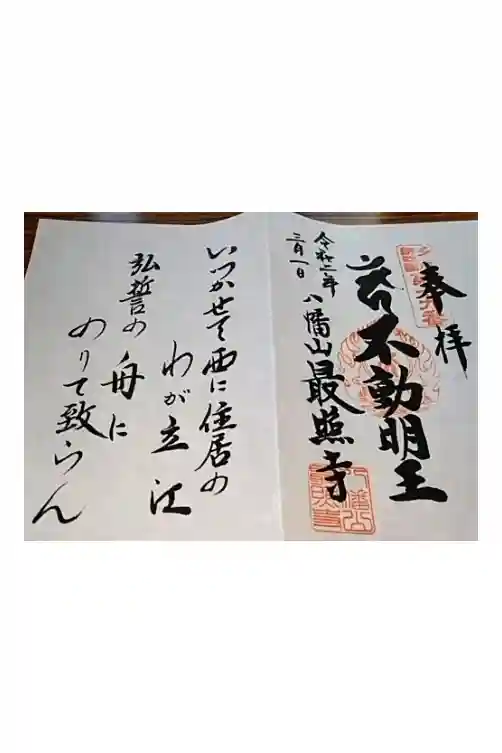 奉拝
不動明王
令和二年
三月一日
八幡山最照寺
いつかせて西に住居の
わが立江
弘誓の舟に
のりて致らん